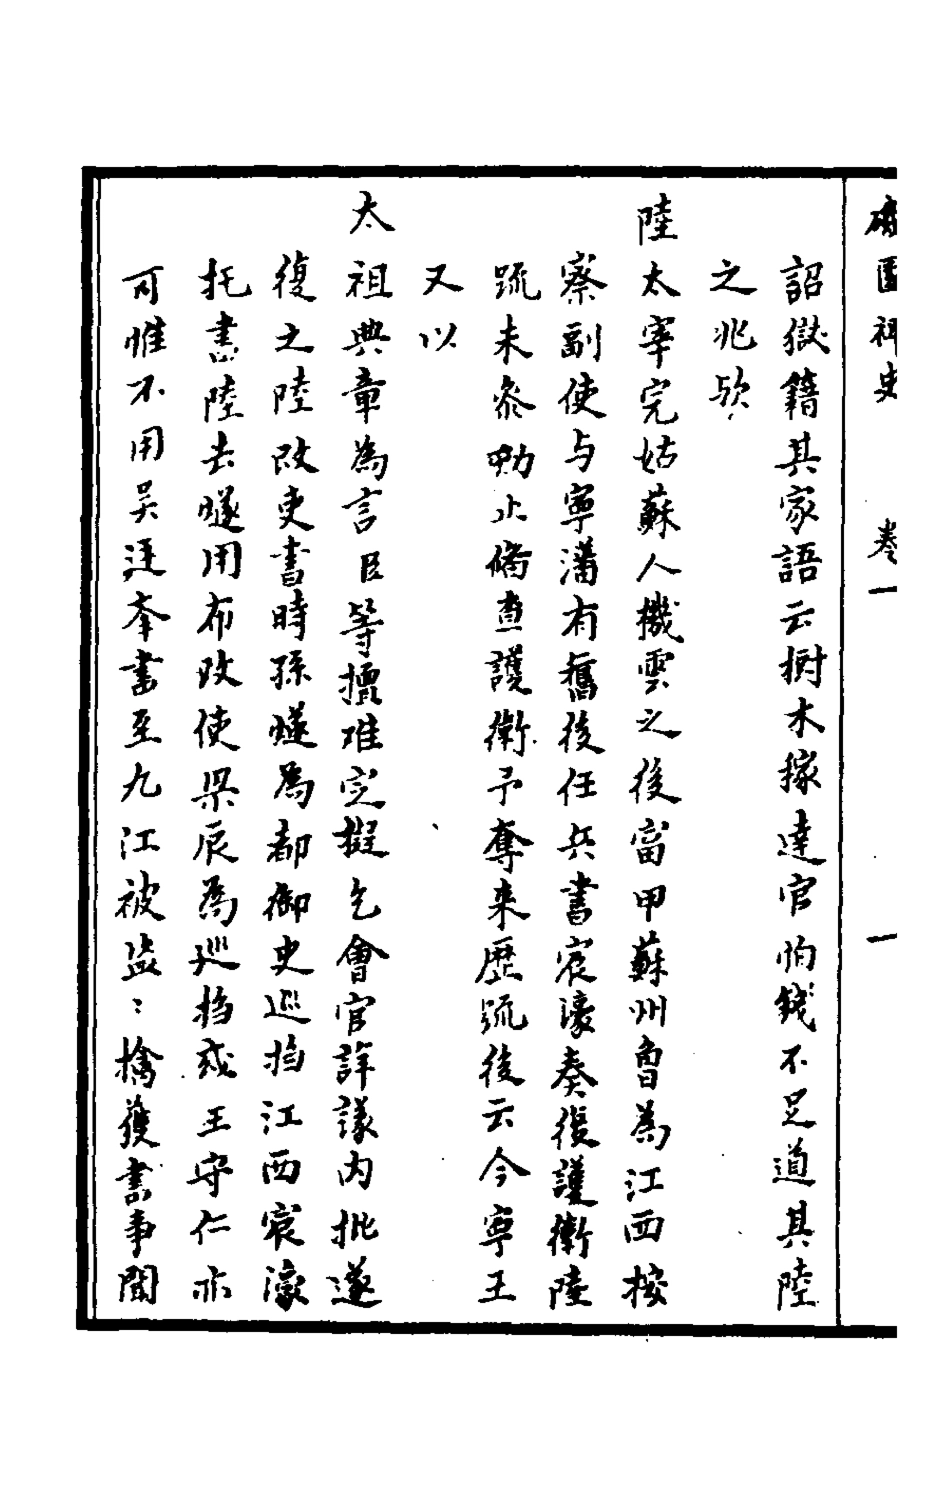 稗史 卷一 一
詔獄籍其家語云樹木稼達官怕錢不足道其陸
之兆欤
陸太宰完姑蘇人機雲之後富甲蘇州曾為江西按
察副使与寧藩有舊後任兵書宸濠奏復護衛陸
疏未參勒止備查護衛予奪来歷疏後云今寧王
又以
太祖典章為言臣等擅难定擬乞會官詳議内批遂
復之陸改吏書時孫燧為都御史巡撫江西宸濠
托書陸去燧用布政使梁辰為巡撫或王守仁亦
可惟不用吴廷举書至九江被盗:擒獲書事聞